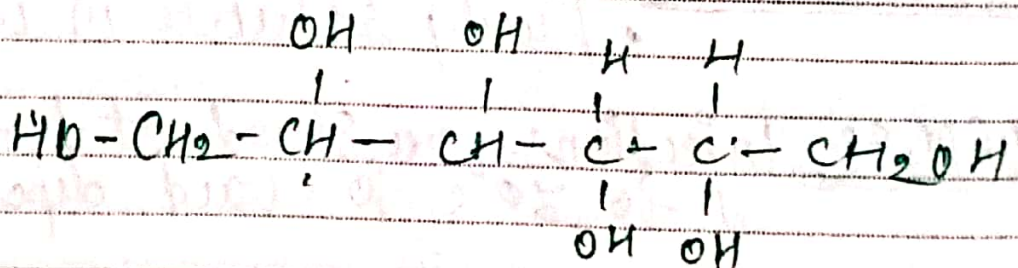 OH OH H H
HO-CH2-CH-CH-C-C-CH2OH
OH OH